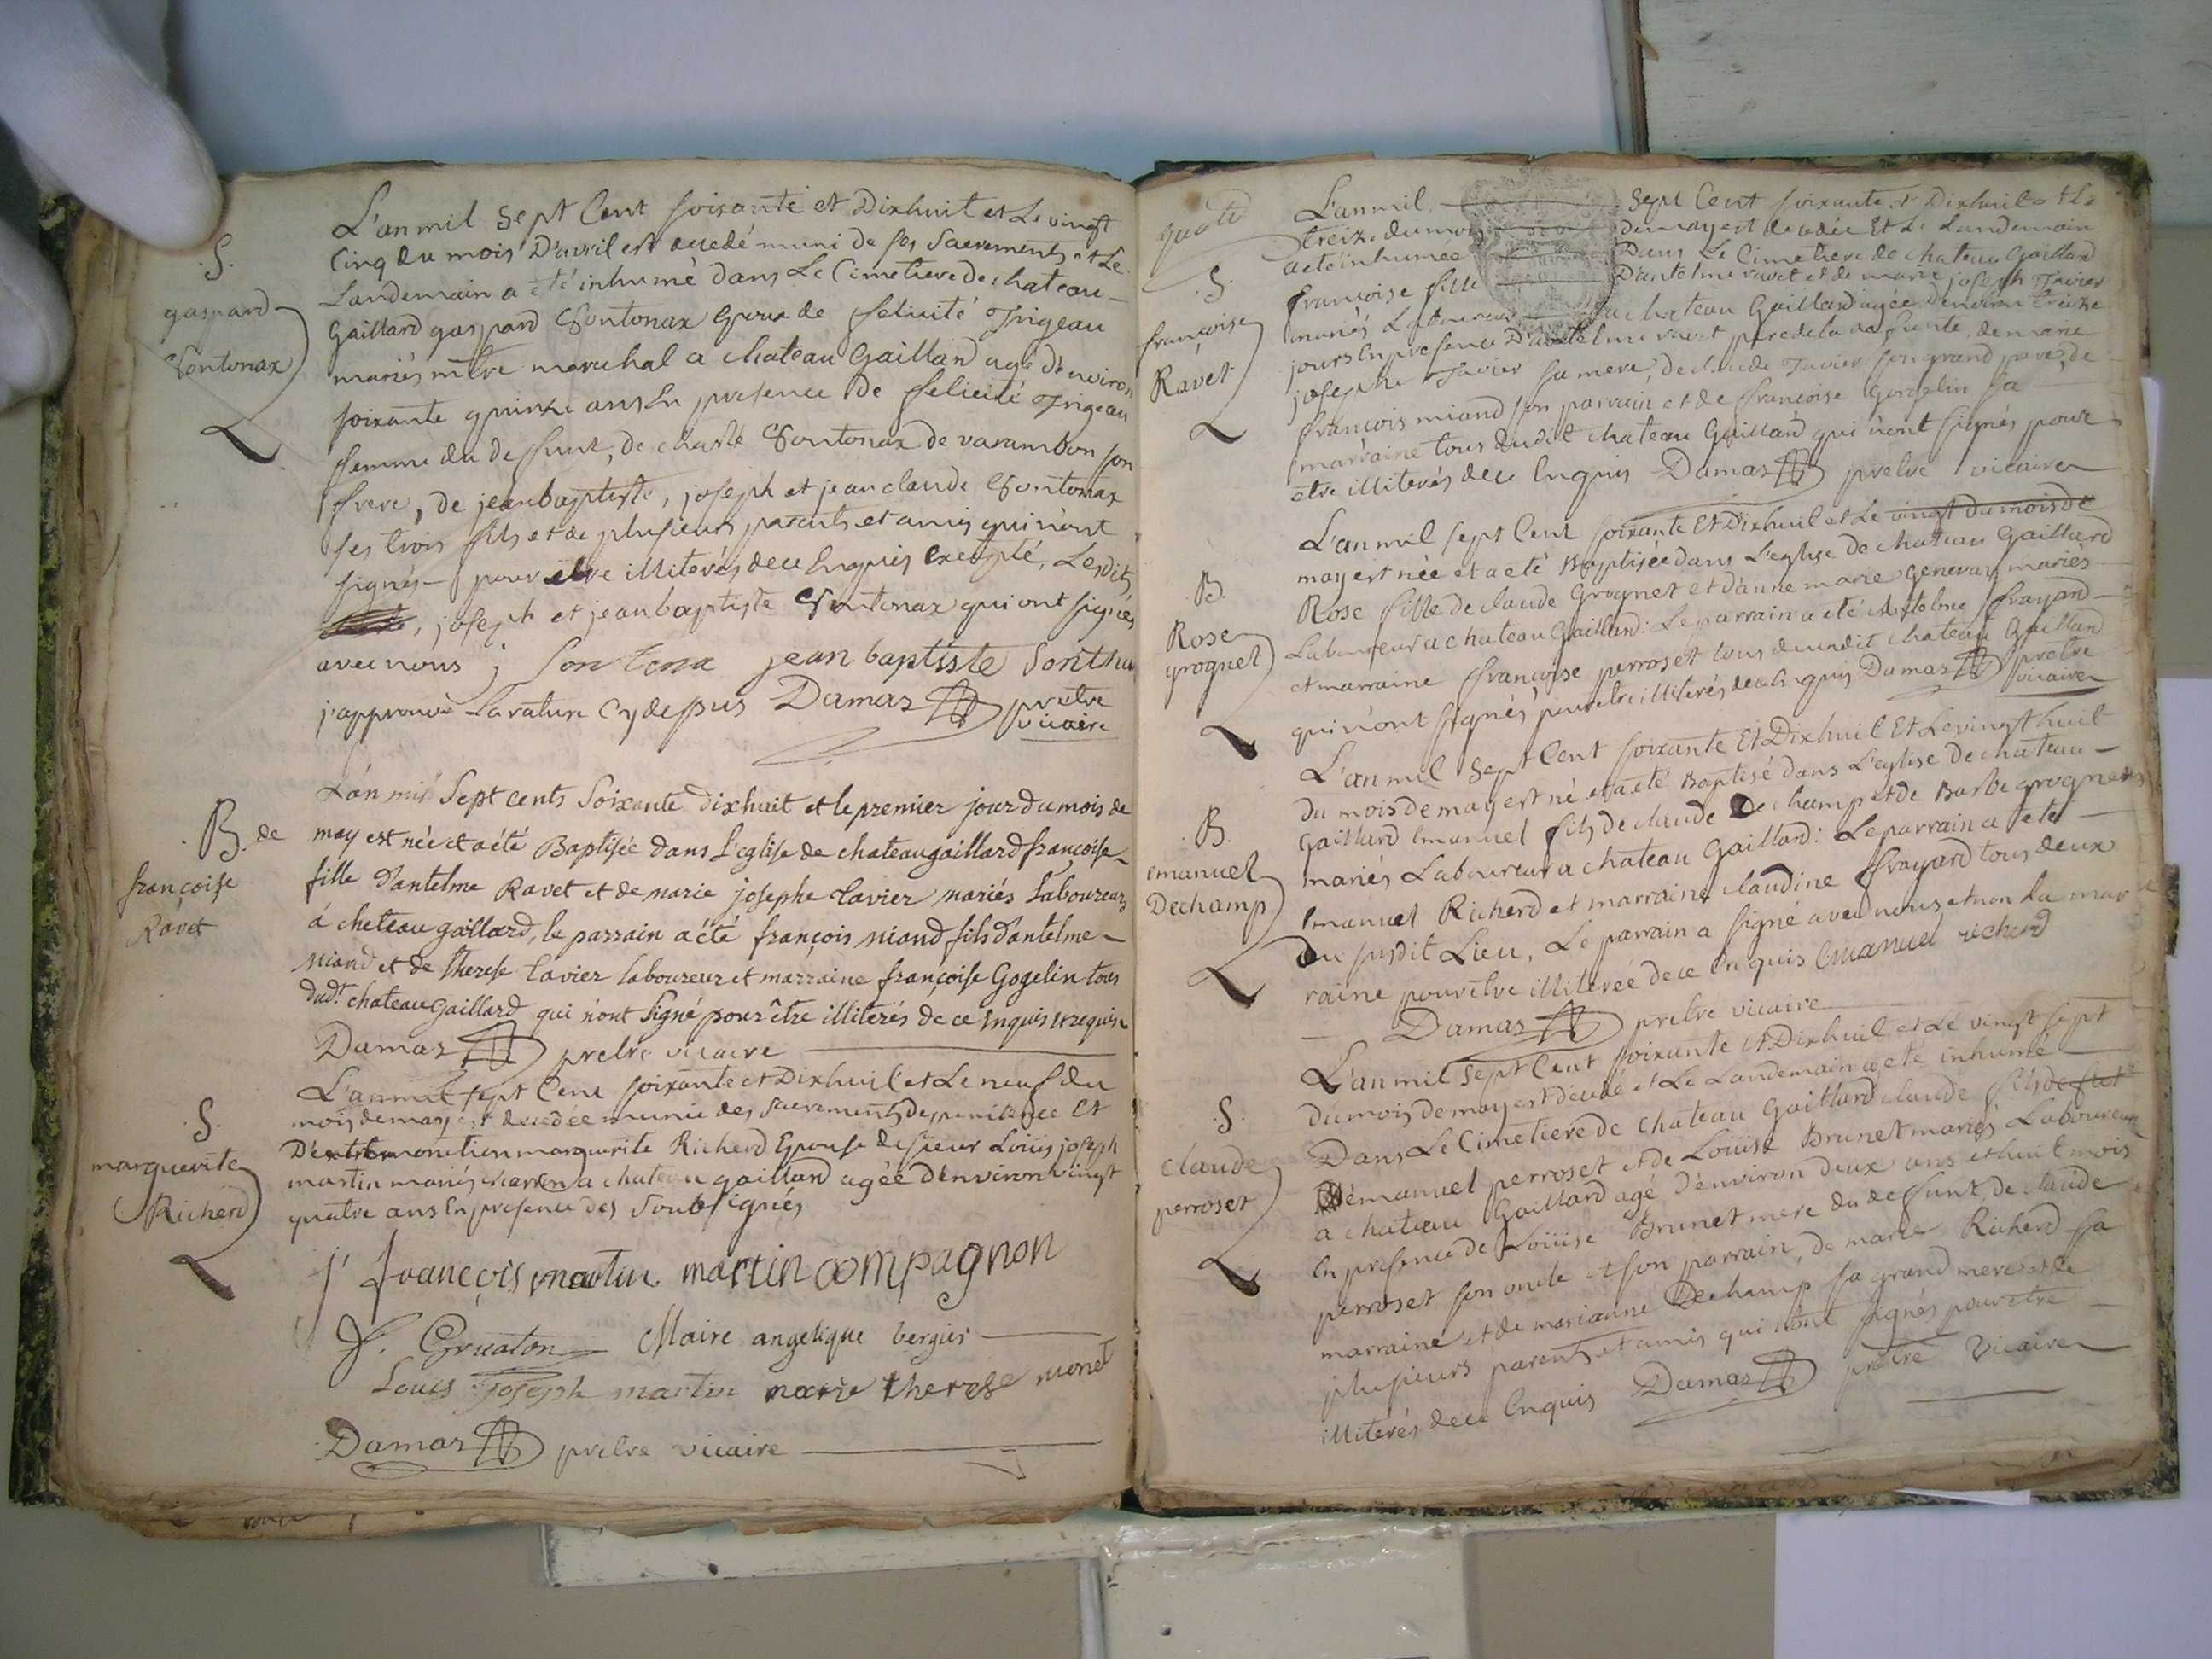 S.
gaspard
Sontonax
L'an mil sept Cent soixante et Dixhuit et Le vingt
Cinq du mois D'avril est decedé muni de ses Sacrements et Le
Landemain a été inhumé dans Le Cimetiere de chateau-
Gaillard gaspard Sontonax Epoux de felicité Trigeau
mariés mtre marechal a chateau Gaillard agé d'environ
soixante quinze ans En presence de felicité Trigeau
femme du defunt, de charle Sontonax de varambon son
frere, de jean baptiste, joseph et jean claude Sontonax
ses trois fils et de plusieurs parents et amis qui n'ont
signés - pour etre illiterés de ce Enquis Excepté, Lesdits
, joseph et jean baptiste Sontonax qui ont signés
avec nous ; Sontona jean baptiste Sontna
j'approuve La rature Cy dessus Damas prêtre
vicaire
B. de
françoise
Ravet
L'an mil Sept cents Soixante dixhuit et le premier jour du mois de
may est née et a été Baptisée dans L'eglise de chateaugaillard françoise
fille d'antelme Ravet et de marie josephe Tavier mariés Laboureurs
á chateau gaillard, le parrain a été françois miand fils d'antelme
miand et de therese Tavier laboureur et marraine françoise Gogelin tous
dud.t chateau Gaillard qui n'ont Signé pour être illiterés de ce Enquis et requis
Damas pretre vicaire
S.
marguerite
Richerd
L'an mil sept Cent soixante et Dixhuit et Le neuf du
mois de may est decedée munie des Sacrements de penitence Et
D'extremonction marguerite Richerd Epouse de sieur Loüis joseph
martin mariés a chateau gaillard agée d'environ vingt
quatre ans En presence des Soubsignés
j' françois martin martin compagnon
J. Gruaton Maire angelique bergier
Louis Joseph martin marie therese monet
Damas prêtre vicaire
S.
françoise
Ravet
L'an mil sept Cent soixante et Dixhuit et Le
treize du mois de may est decedée Et Le Landemain
a eté inhumée Dans Le Cimetiere de chateau Gaillard
françoise fille D'antelme ravet et de marie joseph Tavier
mariés Laboureur a chateau Gaillard agée d'environ treize
jours En presence D'antelme ravet pere de la defunte, de marie
josephe Tavier sa mere, de claude Tavier son grand pere, de
françois miand son parrain et de françoise Gogelin sa
marraine tous dudit chateau Gaillard qui n'ont signés pour
etre illiterés de ce Enquis Damas prêtre vicaire
B.
Rose
grognet
L'an mil sept Cent soixante Et Dixhuit et Le vingt du mois de
may est née et a eté Baptisée dans L'eglise de chateau Gaillard
Rose fille de claude Grognet et d'anne marie genevay mariés
Laboureur a chateau Gaillard: Le parrain a eté Antelme frayard
et marraine françoise perroset tous deux dudit chateau Gaillard
qui n'ont signés pour etre illiterés de ce Enquis Damas prêtre
vicaire
B.
emanuel
Dechamp
L'an mil sept Cent soixante Et Dixhuit Et Le vingt huit
du mois de may est né et a eté Baptisé dans L'eglise de chateau
Gaillard Emanuel fils de claude Dechamp et de Barbe grognet
mariés Laboureur a chateau Gaillard: Le parrain a eté
Emanuel Richerd et marraine claudine frayard tous deux
du susdit Lieu, Le parrain a signé avec nous et non La mar
raine pour etre illiterée de ce Enquis Emanuel richerd
Damas prêtre vicaire
S.
claude
perroset
L'an mil sept Cent soixante et Dixhuit et Le vingt sept
du mois de may est decedé et Le Landemain a eté inhumé
Dans Le Cimetiere de chateau Gaillard claude fils
d'émanuel perroset et de Loüise Brunet mariés Laboureur
a chateau Gaillard agé d'environ deux ans et huit mois
En presence de Loüise Brunet mere du defunt, de claude
perroset son oncle et son parrain, de marie Richerd sa
marraine et de marianne Dechamp sa grand mere et de
plusieurs parents et amis qui n'ont signés pour etre
illiterés de ce Enquis Damas prêtre Vicaire